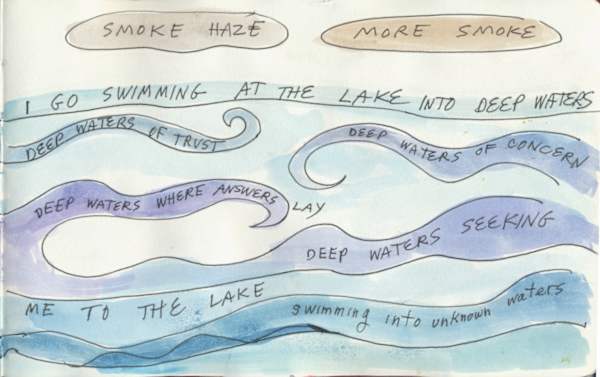 SMOKE HAZE
MORE SMOKE
I GO SWIMMING AT THE LAKE INTO DEEP WATERS
DEEP WATERS OF TRUST
DEEP WATERS OF CONCERN
DEEP WATERS WHERE ANSWERS LAY
DEEP WATERS SEEKING
ME TO THE LAKE
swimming into unknown waters